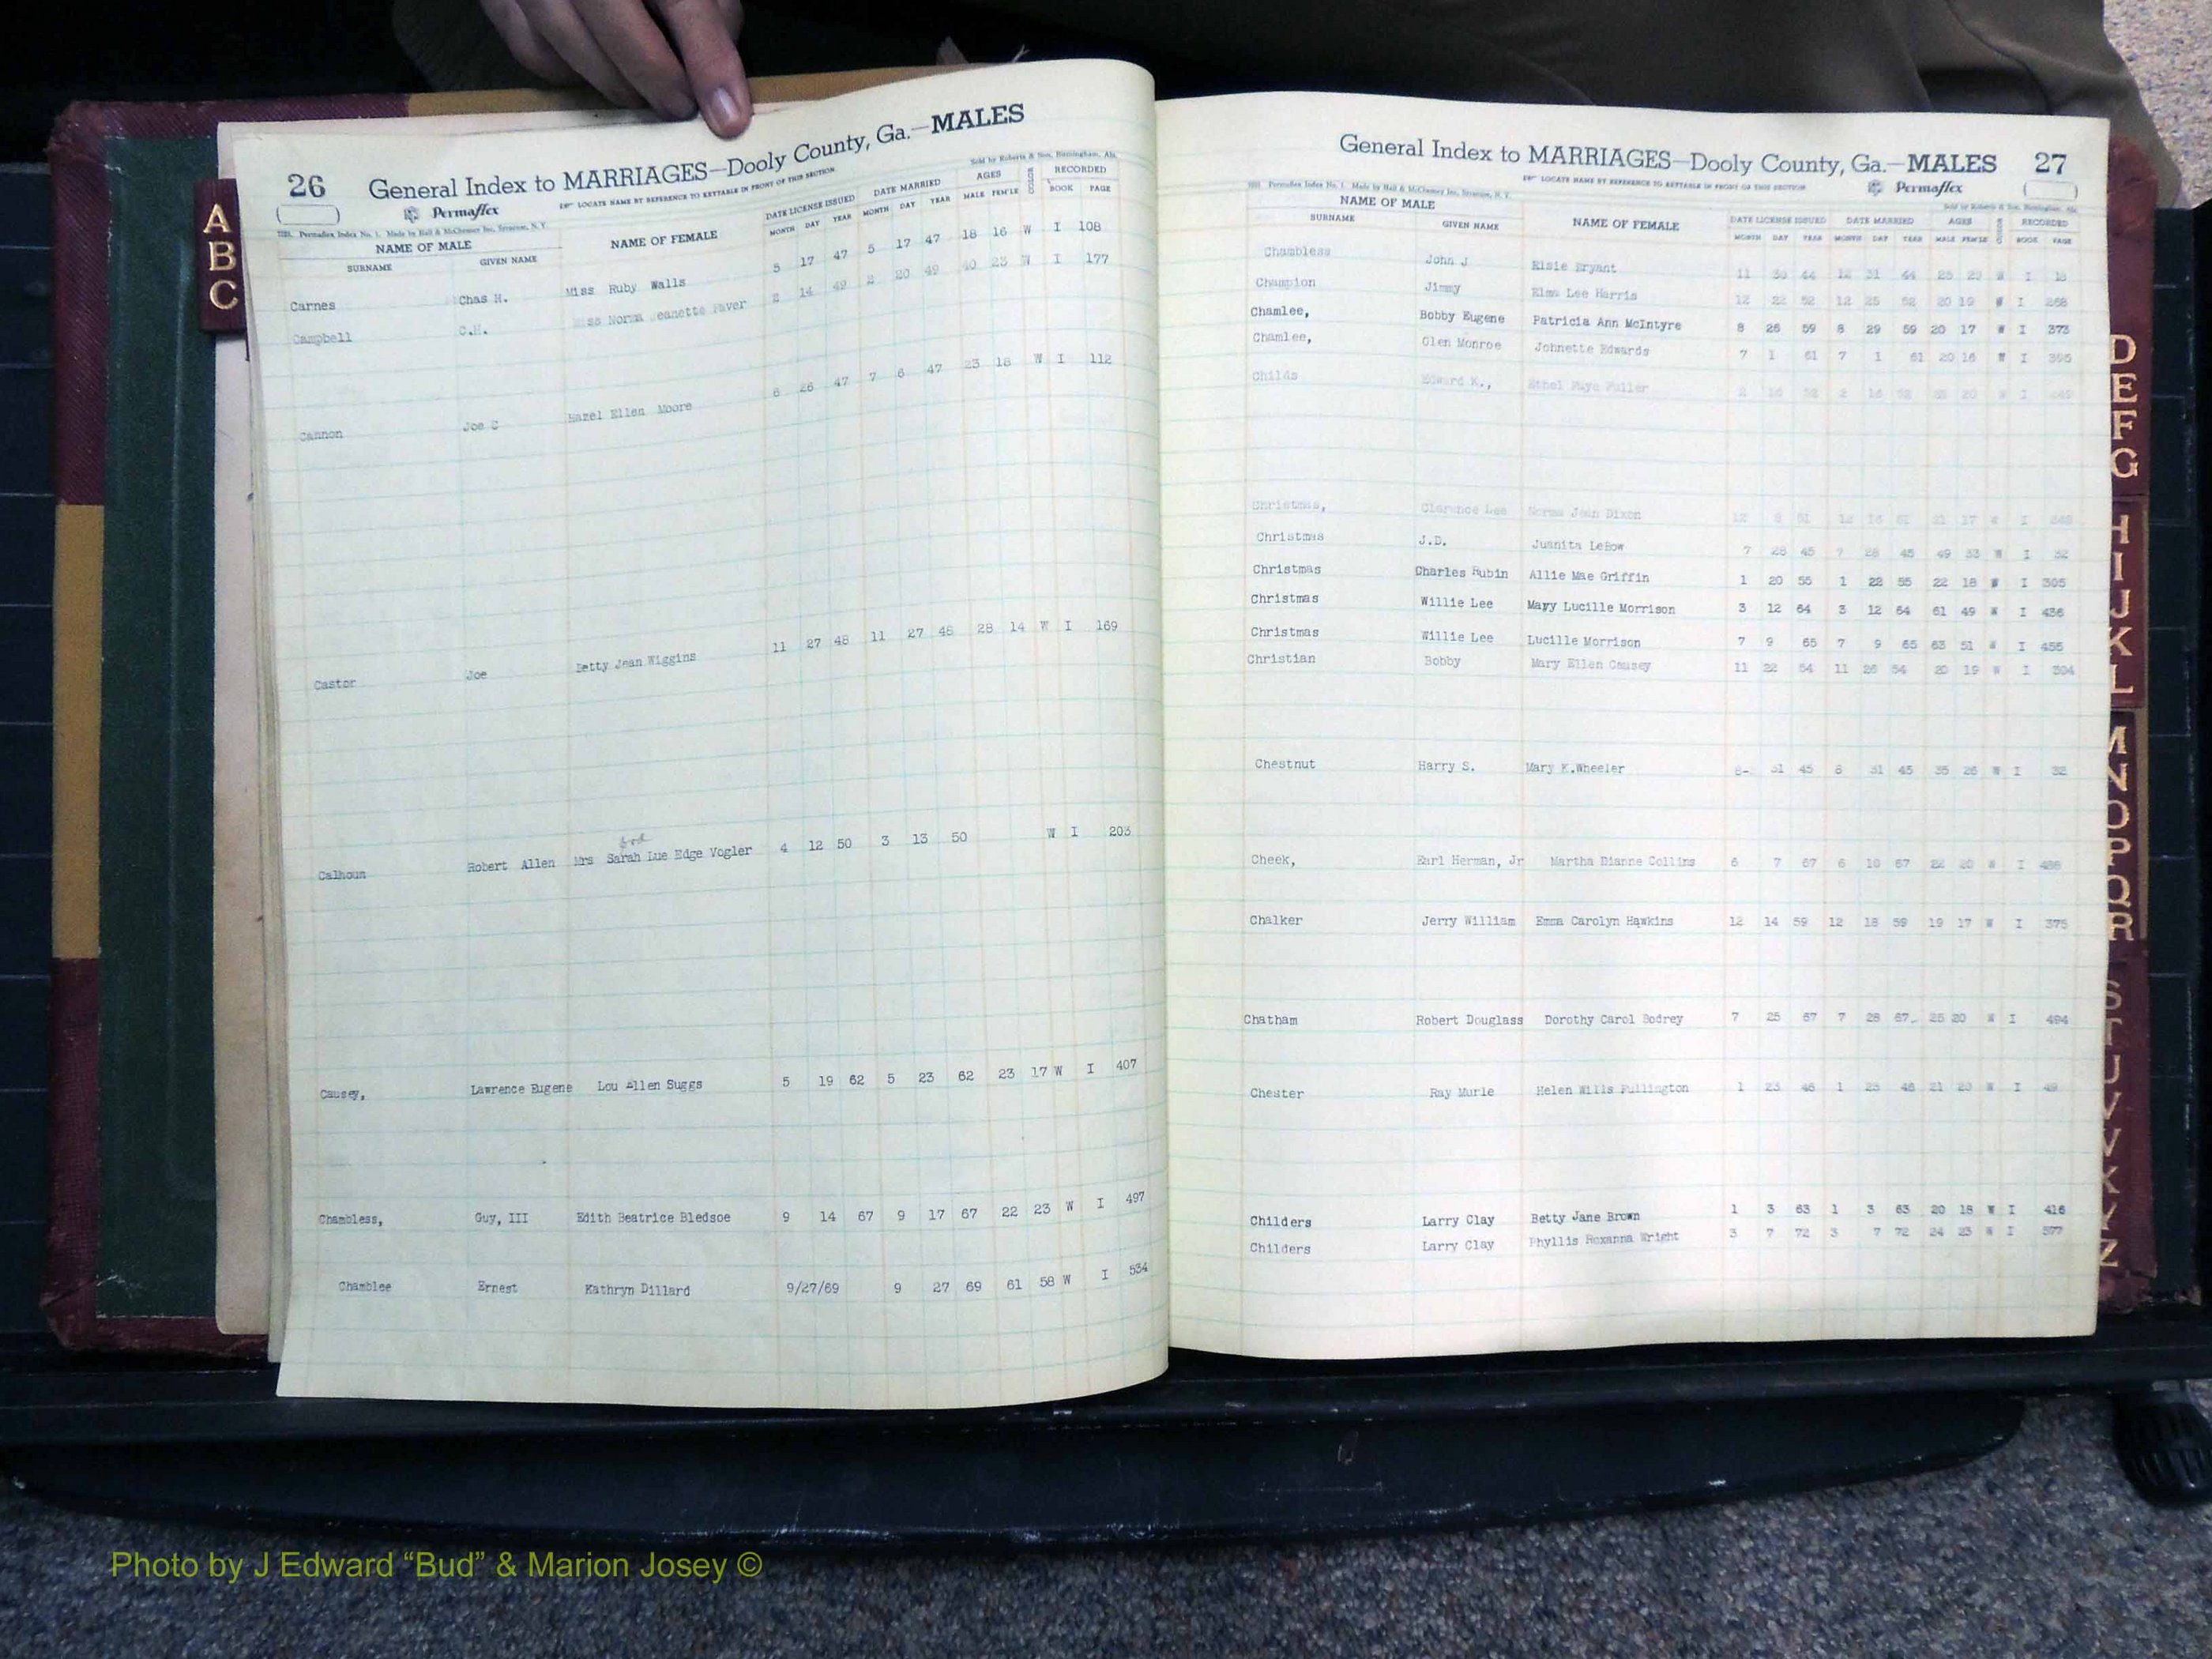 26
General Index to MARRIAGES—Dooly County, Ga.—MALES
Permaflex
LOCATE NAME BY REFERENCE TO KEYTABLE IN FRONT OF THIS SECTION
Sold by Roberts & Son, Birmingham, Ala.
NAME OF MALE NAME OF FEMALE DATE LICENSE ISSUED DATE MARRIED AGES RECORDED
SURNAME GIVEN NAME MONTH DAY YEAR MONTH DAY YEAR MALE FEM'LE BOOK PAGE
Carnes Chas H. Miss Ruby Walls 5 17 47 5 17 47 18 16 W I 108
Campbell C.H. Miss Norma Jeanette Faver 2 14 49 2 20 49 40 23 W I 177
Cannon Joe C Hazel Ellen Moore 6 26 47 7 6 47 23 18 W I 112
Castor Joe Betty Jean Wiggins 11 27 48 11 27 48 28 14 W I 169
Calhoun Robert Allen Mrs Sarah Lue Edge Vogler 4 12 50 3 13 50 W I 203
Causey, Lawrence Eugene Lou Allen Suggs 5 19 62 5 23 62 23 17 W I 407
Chambless, Guy, III Edith Beatrice Bledsoe 9 14 67 9 17 67 22 23 W I 497
Chamblee Ernest Kathryn Dillard 9/27/69 9 27 69 61 58 W I 534
General Index to MARRIAGES—Dooly County, Ga.—MALES 27
LOCATE NAME BY REFERENCE TO KEYTABLE IN FRONT OF THIS SECTION
Permaflex
NAME OF MALE NAME OF FEMALE DATE LICENSE ISSUED DATE MARRIED AGES RECORDED
SURNAME GIVEN NAME MONTH DAY YEAR MONTH DAY YEAR MALE FEM'LE BOOK PAGE
Chambless John J Elsie Bryant 11 30 44 12 31 44 W I
Champion Jimmy Elma Lee Harris 12 22 52 12 25 52 20 19 W I 268
Chamlee, Bobby Eugene Patricia Ann McIntyre 8 26 59 8 29 59 20 17 W I 373
Chamlee, Olen Monroe Johnette Edwards 7 1 61 7 1 61 20 16 W I 395
Childs Edward K., Ethel Faye Fuller
Christmas, Clarence Lee Norma Jean Dixon
Christmas J.D. Juanita LeRow 7 28 45 7 28 45 49 33 W I 32
Christmas Charles Rubin Allie Mae Griffin 1 20 55 1 22 55 22 18 W I 305
Christmas Willie Lee Mayy Lucille Morrison 3 12 64 3 12 64 61 49 W I 436
Christmas Willie Lee Lucille Morrison 7 9 65 7 9 65 63 51 W I 455
Christian Bobby Mary Ellen Causey 11 22 54 11 26 54 20 19 W I 304
Chestnut Harry S. Mary K.Wheeler 8- 31 45 8 31 45 35 26 W I 32
Cheek, Earl Herman, Jr Martha Dianne Collins 6 7 67 6 10 67 22 20 W I
Chalker Jerry William Emma Carolyn Hawkins 12 14 59 12 18 59 19 17 W I 375
Chatham Robert Douglass Dorothy Carol Bodrey 7 25 67 7 28 67 25 20 W I 494
Chester Ray Murle Helen Wills Fullington 1 23 46 1 23 46 21 20 W I
Childers Larry Clay Betty Jane Brown 1 3 63 1 3 63 20 18 W I 416
Childers Larry Clay Phyllis Roxanna Wright 3 7 72 3 7 72 24 23 W I 577
A
B
C
D
E
F
G
H
I
J
K
L
M
N
O
P
Q
R
S
T
U
V
W
X
Y
Z
Photo by J Edward “Bud” & Marion Josey ©